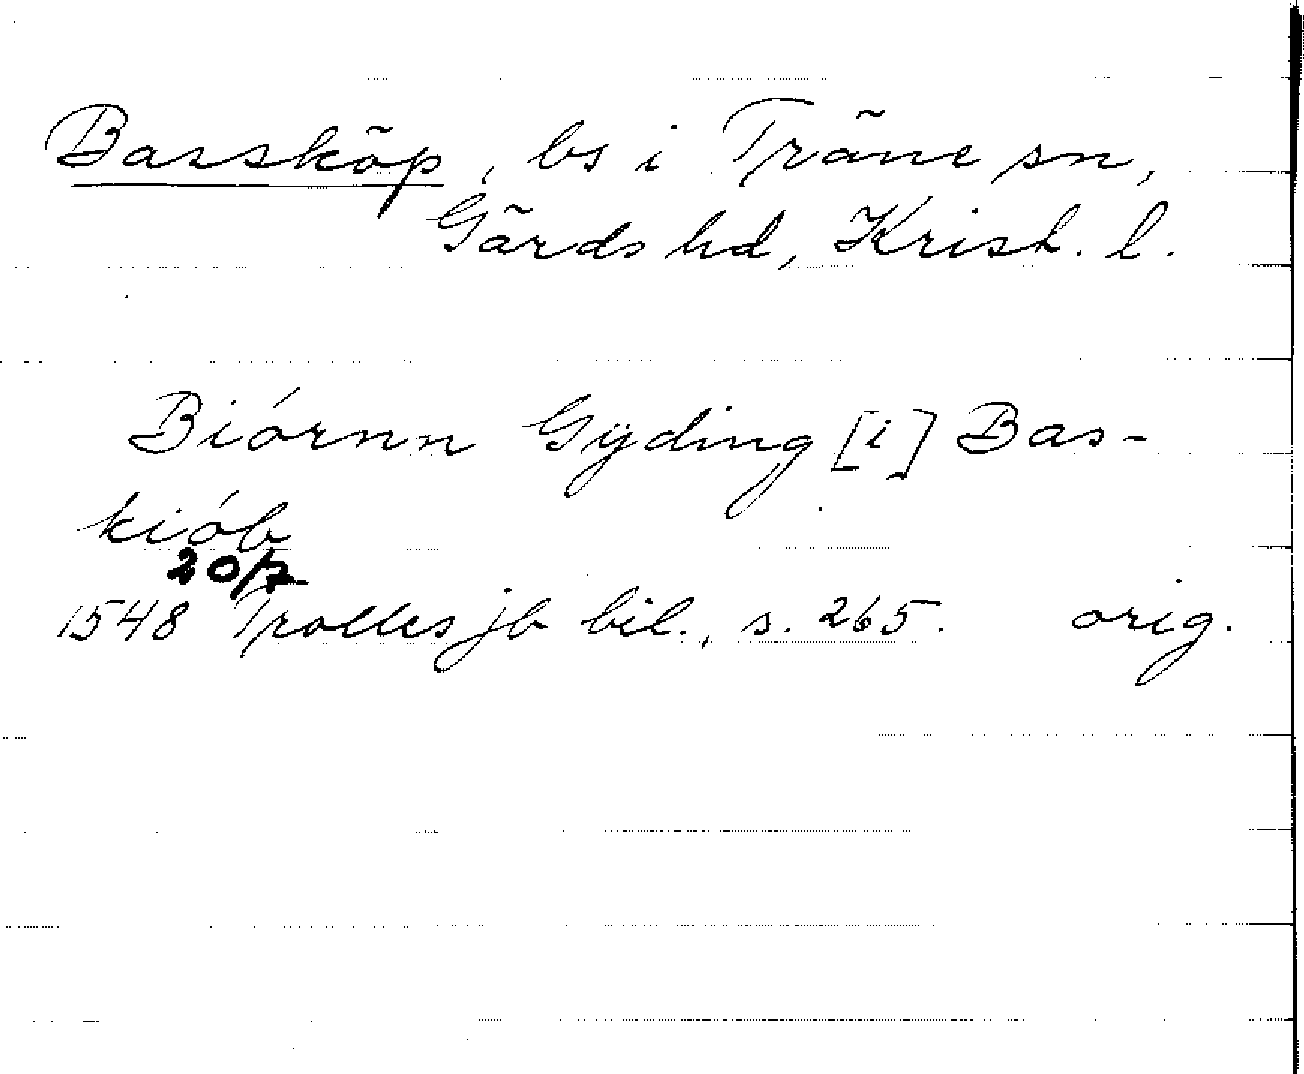 Barsköp, bs i Träne sn,
Gärds hd, Krist. l.
Biórnn Gÿding [i] Bas-
kiób
20/7
1548 Trolles jb bil., s. 265. orig.